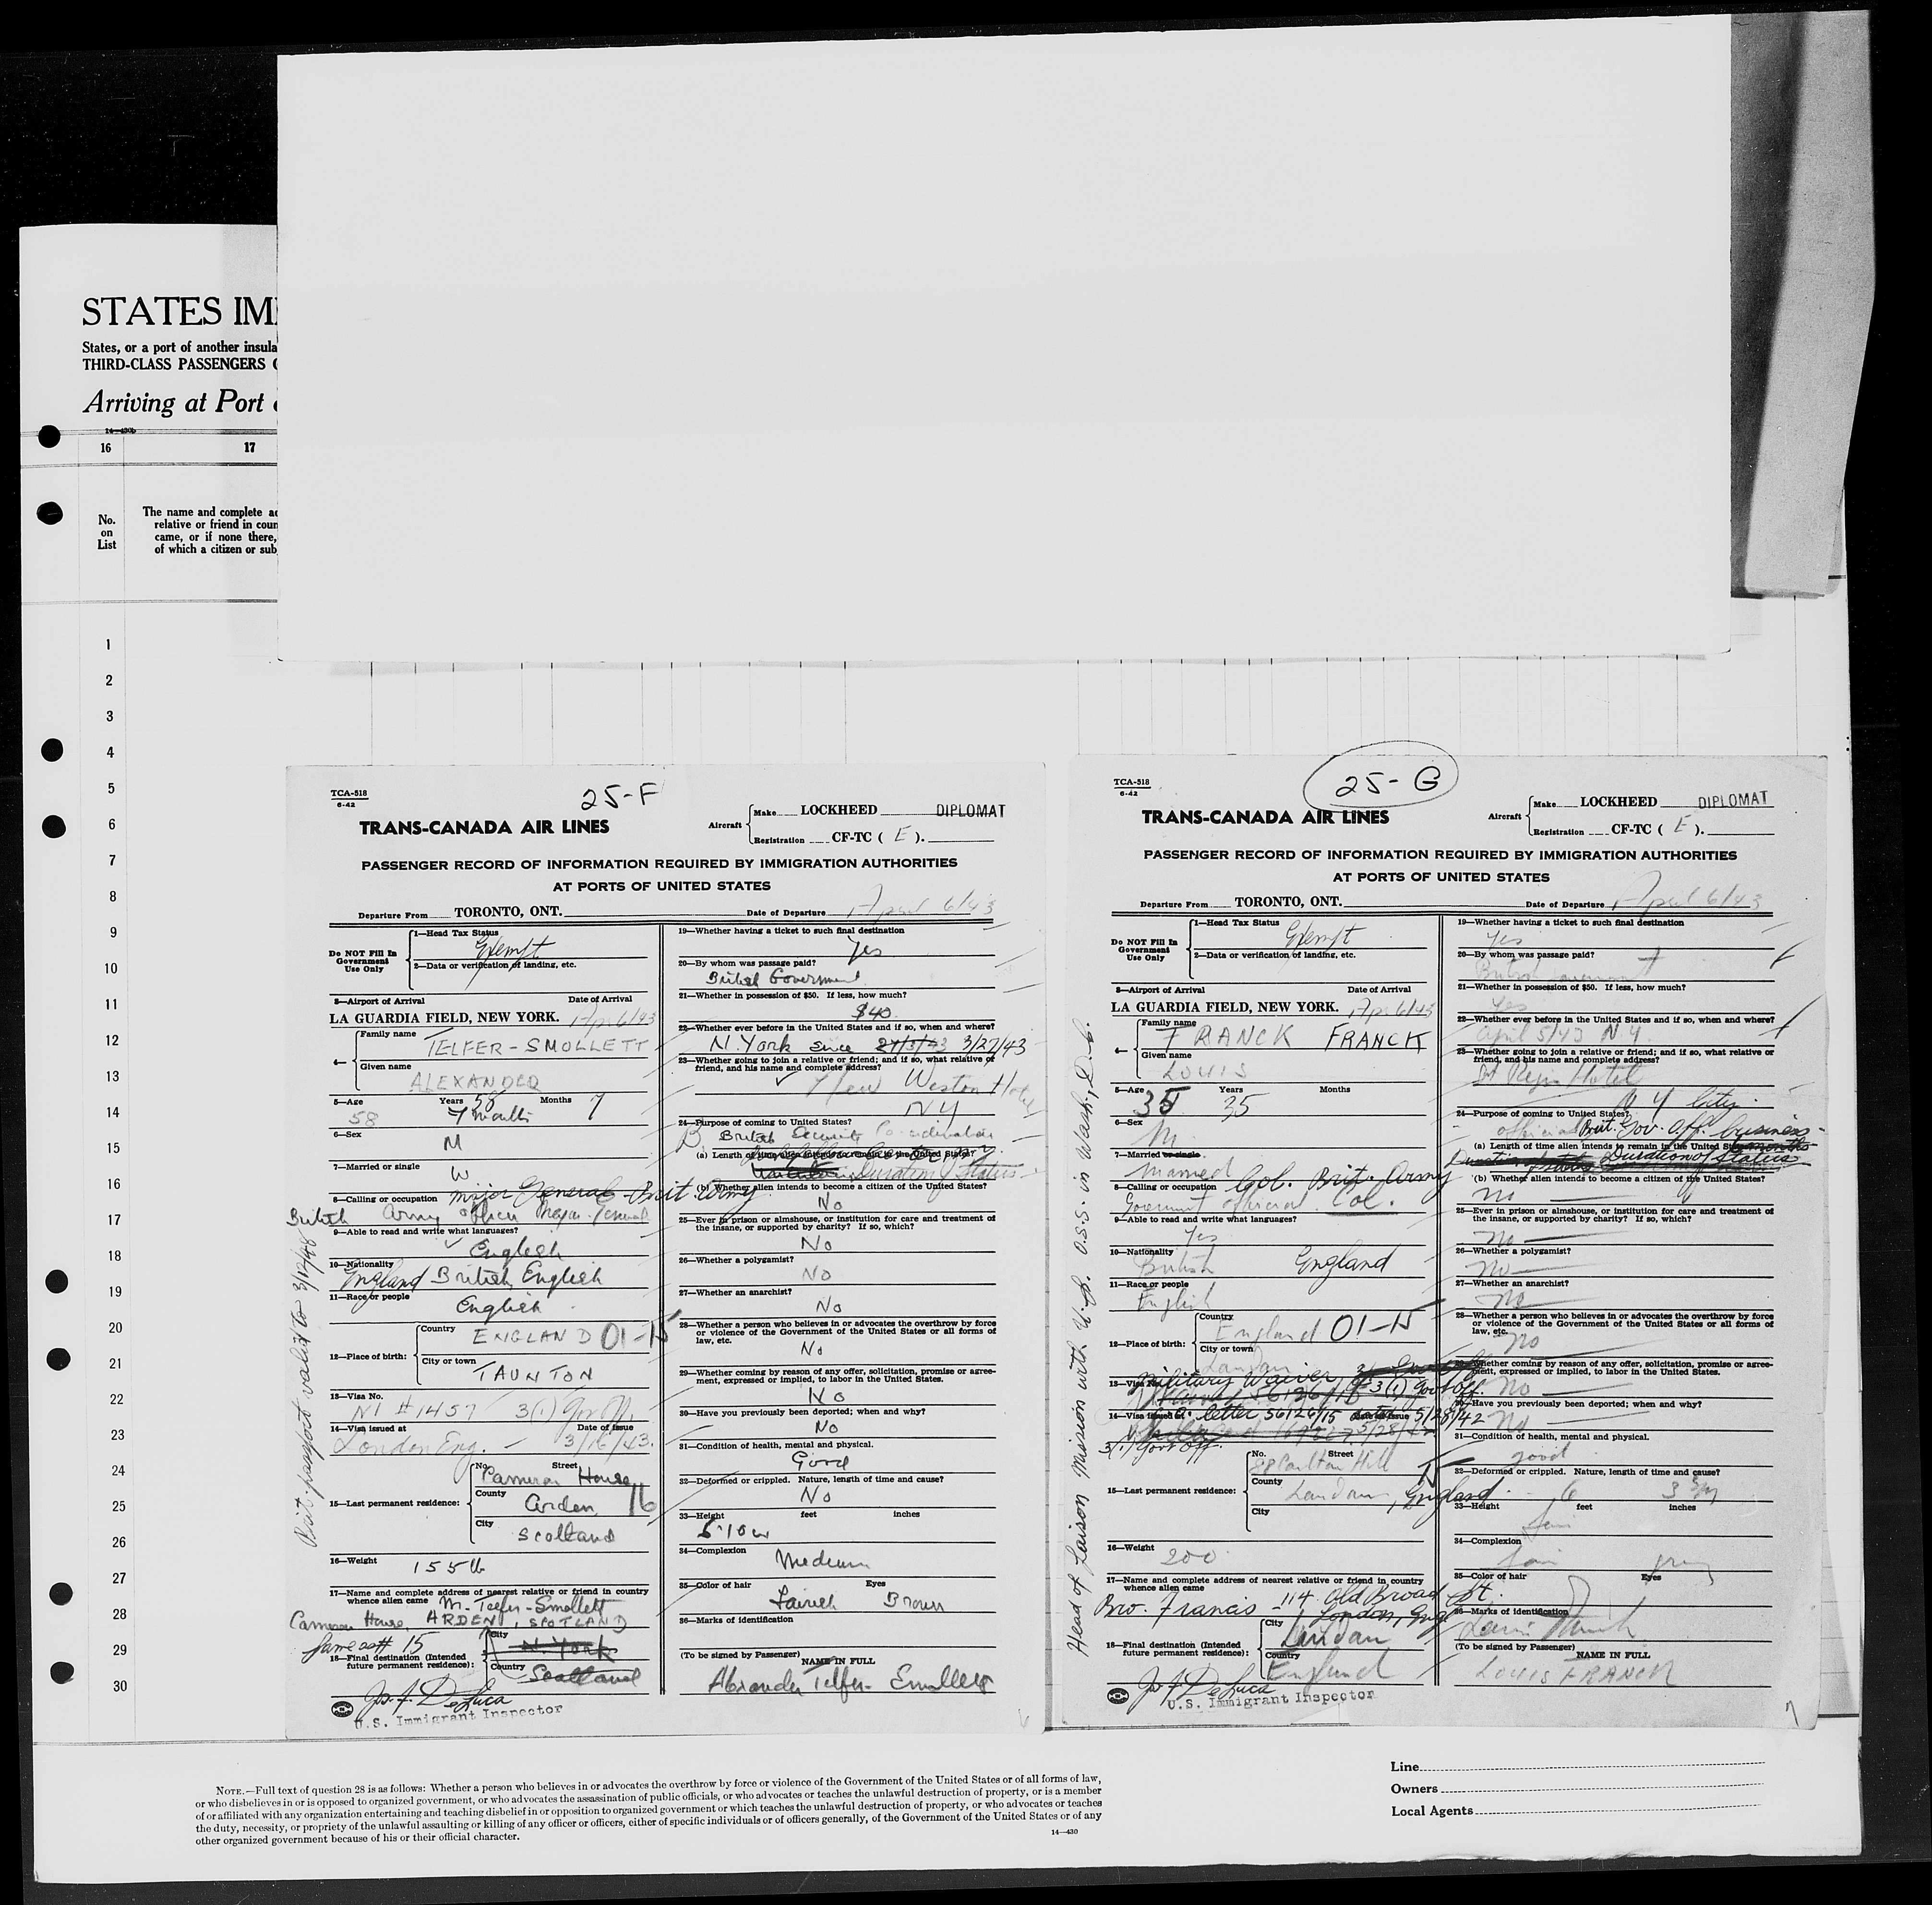 STATES IM
States, or a port of another insula
THIRD-CLASS PASSENGERS
Arriving at Port
14—430b
16
17
No.
on
List
The name and complete ad
relative or friend in coun
came, or if none there,
of which a citizen or sub
1
2
3
4
5
6
7
8
9
10
11
12
13
14
15
16
17
18
19
20
21
22
23
24
25
26
27
28
29
30
TCA-518
6-42
25-F
TRANS-CANADA AIR LINES
Aircraft
Make LOCKHEED DIPLOMAT
Registration CF-TC ( E ).
PASSENGER RECORD OF INFORMATION REQUIRED BY IMMIGRATION AUTHORITIES
AT PORTS OF UNITED STATES
Departure From TORONTO, ONT. Date of Departure April 6/43
Do NOT Fill In
Government
Use Only
1—Head Tax Status
Exempt
2—Data or verification of landing, etc.
3—Airport of Arrival Date of Arrival
LA GUARDIA FIELD, NEW YORK. Apr 6/43
4— Family name
TELFER-SMOLLETT
Given name
ALEXANDER
5—Age Years 58 Months 7
58 7 months
6—Sex
M
7—Married or single
W
8—Calling or occupation Major General Brit Army
British Army Officer Major General
9—Able to read and write what languages?
English
10—Nationality
England British English
11—Race or people
English
12—Place of birth:
Country
ENGLAND 01-15
City or town
TAUNTON
13—Visa No.
NI #1457 3(1) Gov Off
14—Visa issued at Date of Issue
London Eng. — 3/16/43.
15—Last permanent residence:
No. Street
Cameron House
County
Arden 16
City
Scotland
16—Weight 155 lb
17—Name and complete address of nearest relative or friend in country
whence alien came M. Telfer-Smollett
Cameron House, ARDEN, SCOTLAND
Same as # 15
18—Final destination (Intended
future permanent residence):
City
N. York
Country
Scotland
Jos. F. DeLuca
U.S. Immigrant Inspector
Brit. passport valid to 3/12/48
19—Whether having a ticket to such final destination
Yes
20—By whom was passage paid?
British Goverment
21—Whether in possession of $50. If less, how much?
$40
22—Whether ever before in the United States and if so, when and where?
N. York since 27/3/43 3/27/43
23—Whether going to join a relative or friend; and if so, what relative or
friend, and his name and complete address?
New Weston Hotel
NY
24—Purpose of coming to United States?
British Security Co-ordination
(a) Length of time alien intends to remain in the United States?
Duration of Status
(b) Whether alien intends to become a citizen of the United States?
No
25—Ever in prison or almshouse, or institution for care and treatment of
the insane, or supported by charity? If so, which?
No
26—Whether a polygamist?
No
27—Whether an anarchist?
No
28—Whether a person who believes in or advocates the overthrow by force
or violence of the Government of the United States or all forms of
law, etc.
No
29—Whether coming by reason of any offer, solicitation, promise or agree-
ment, expressed or implied, to labor in the United States.
No
30—Have you previously been deported; when and why?
No
31—Condition of health, mental and physical.
Good
32—Deformed or crippled. Nature, length of time and cause?
No
33—Height feet inches
5.10
34—Complexion
Medium
35—Color of hair Eyes
Fairish Brown
36—Marks of identification
(To be signed by Passenger) NAME IN FULL
Alexander Telfer-Smollett
TCA-518
6-42
25-G
TRANS-CANADA AIR LINES
Aircraft
Make LOCKHEED DIPLOMAT
Registration CF-TC ( E ).
PASSENGER RECORD OF INFORMATION REQUIRED BY IMMIGRATION AUTHORITIES
AT PORTS OF UNITED STATES
Departure From TORONTO, ONT. Date of Departure April 6/43
Do NOT Fill In
Government
Use Only
1—Head Tax Status
Exempt
2—Data or verification of landing, etc.
3—Airport of Arrival Date of Arrival
LA GUARDIA FIELD, NEW YORK. Apr 6/43
4— Family name
FRANCK FRANCK
Given name
LOUIS
5—Age Years Months
35 35
6—Sex
M.
7—Married or single
Married
8—Calling or occupation Col. Brit. Army
Goverment Official Col.
9—Able to read and write what languages?
Yes
10—Nationality
British England
11—Race or people
English
12—Place of birth:
Country
England 01-15
City or town
London
13—Visa No.
Military Waiver 3(1) Gov't Off.
14—Visa issued at letter 56126/15 Date of Issue 5/28/42
3(1) Gov't Off.
15—Last permanent residence:
No. Street
Carlton Hill
County
London, England.
City
16—Weight 200
17—Name and complete address of nearest relative or friend in country
whence alien came
Bro. Francis - 114 Old Broad St.
London, Engl
18—Final destination (Intended
future permanent residence):
City
London
Country
England
Jos. F. DeLuca
U.S. Immigrant Inspector
Head of Laison Mission with U.S. O.S.S. in Wash., D.C.
19—Whether having a ticket to such final destination
Yes
20—By whom was passage paid?
British Goverment
21—Whether in possession of $50. If less, how much?
Yes
22—Whether ever before in the United States and if so, when and where?
April 5/43 N Y.
23—Whether going to join a relative or friend; and if so, what relative or
friend, and his name and complete address?
St Regis Hotel
N Y City.
24—Purpose of coming to United States?
official Brit. Gov. Off. business
(a) Length of time alien intends to remain in the United States
Duration of Status
(b) Whether alien intends to become a citizen of the United States?
no
25—Ever in prison or almshouse, or institution for care and treatment of
the insane, or supported by charity? If so, which?
no
26—Whether a polygamist?
no
27—Whether an anarchist?
no
28—Whether a person who believes in or advocates the overthrow by force
or violence of the Government of the United States or all forms of
law, etc.
no
29—Whether coming by reason of any offer, solicitation, promise or agree-
ment, expressed or implied, to labor in the United States.
no
30—Have you previously been deported; when and why?
no
31—Condition of health, mental and physical.
good
32—Deformed or crippled. Nature, length of time and cause?
6 3
33—Height feet inches
34—Complexion
fair
35—Color of hair Eyes
36—Marks of identification
Louis Franck
(To be signed by Passenger) NAME IN FULL
LOUIS FRANCK
NOTE.—Full text of question 28 is as follows: Whether a person who believes in or advocates the overthrow by force or violence of the Government of the United States or of all forms of law,
or who disbelieves in or is opposed to organized government, or who advocates the assassination of public officials, or who advocates or teaches the unlawful destruction of property, or is a member
of or affiliated with any organization entertaining and teaching disbelief in or opposition to organized government or which teaches the unlawful destruction of property, or who advocates or teaches
the duty, necessity, or propriety of the unlawful assaulting or killing of any officer or officers, either of specific individuals or of officers generally, of the Government of the United States or of any
other organized government because of his or their official character.
14—430
Line
Owners
Local Agents